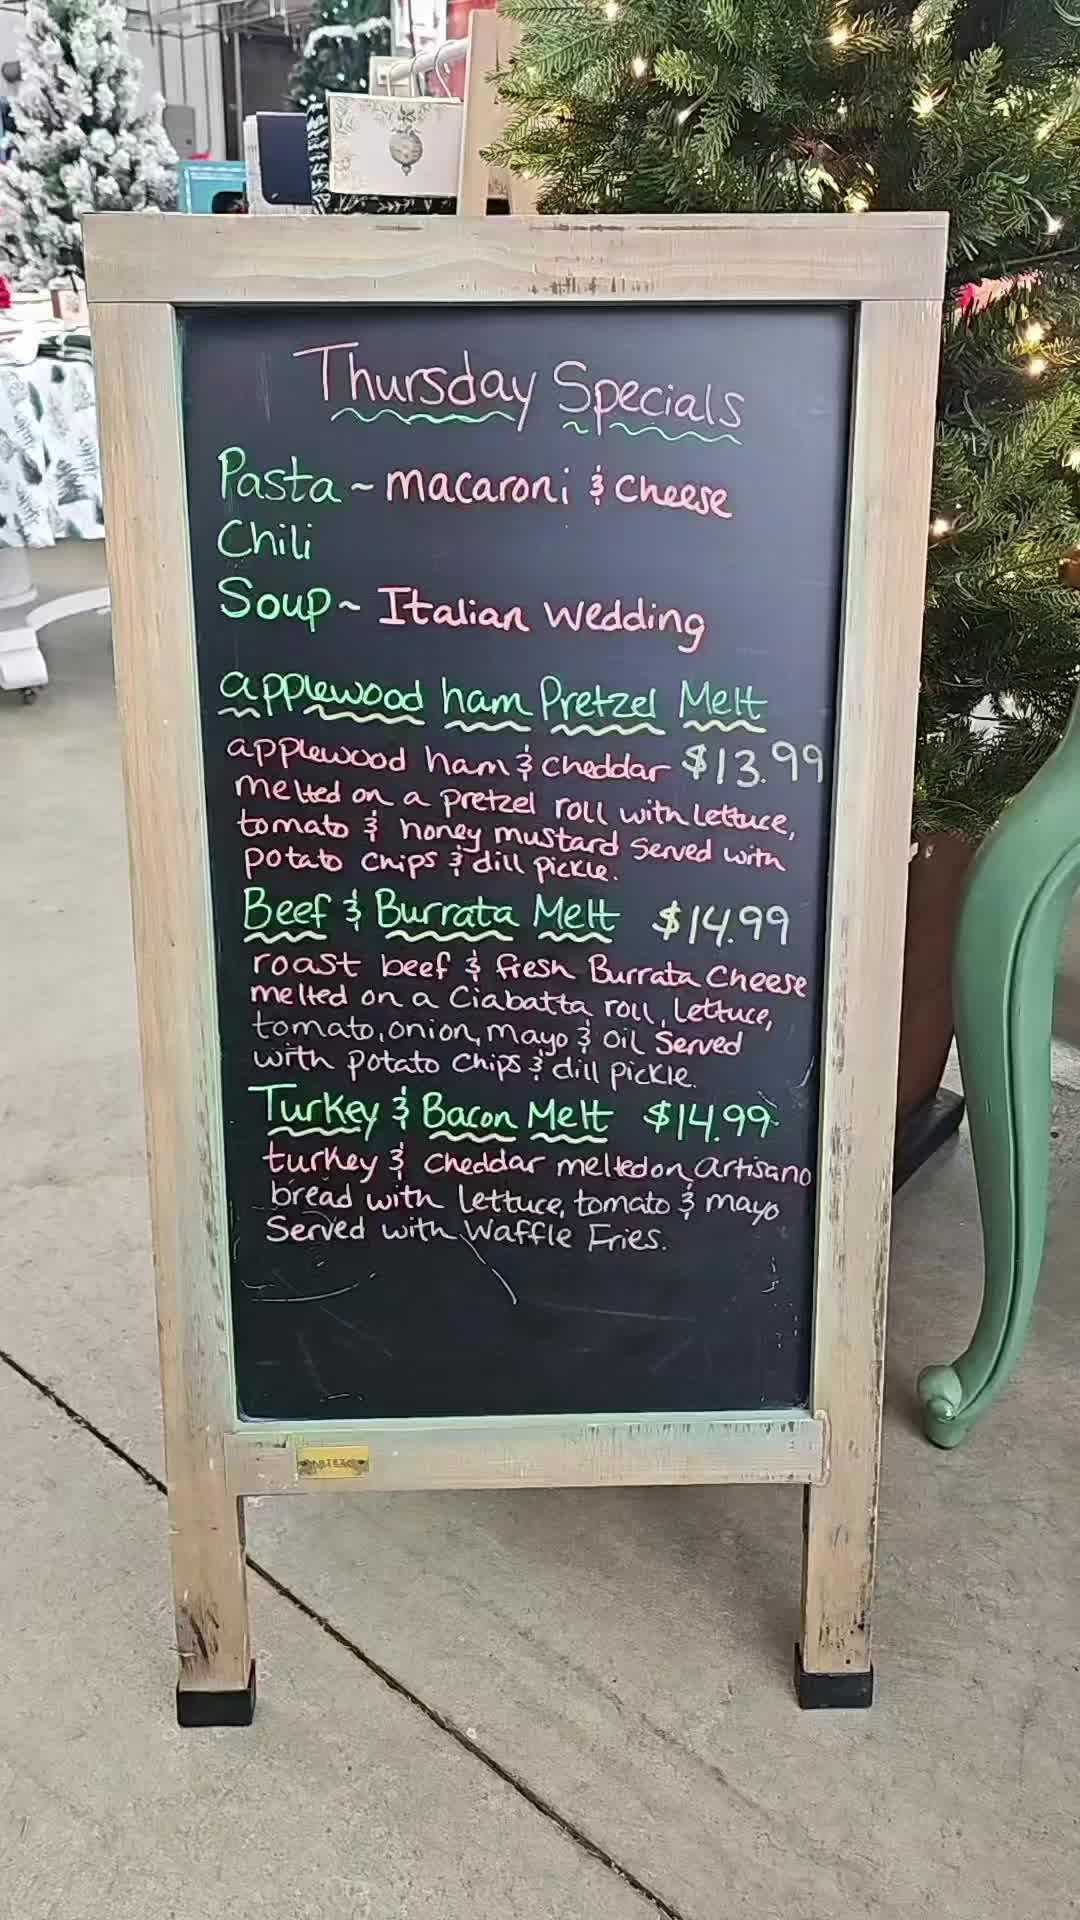 Thursday Specials
Pasta ~ macaroni & Cheese
Chili
Soup ~ Italian Wedding
applewood ham Pretzel Melt
applewood ham & cheddar $13.99
melted on a pretzel roll with Lettuce,
tomato & honey mustard Served with
potato chips & dill pickle.
Beef & Burrata Melt $14.99
roast beef & fresh Burrata Cheese
melted on a Ciabatta roll, Lettuce,
tomato, onion, mayo & oil Served
with potato chips & dill pickle.
Turkey & Bacon Melt $14.99
turkey & cheddar melted on artisano
bread with lettuce, tomato & mayo
Served with Waffle Fries.